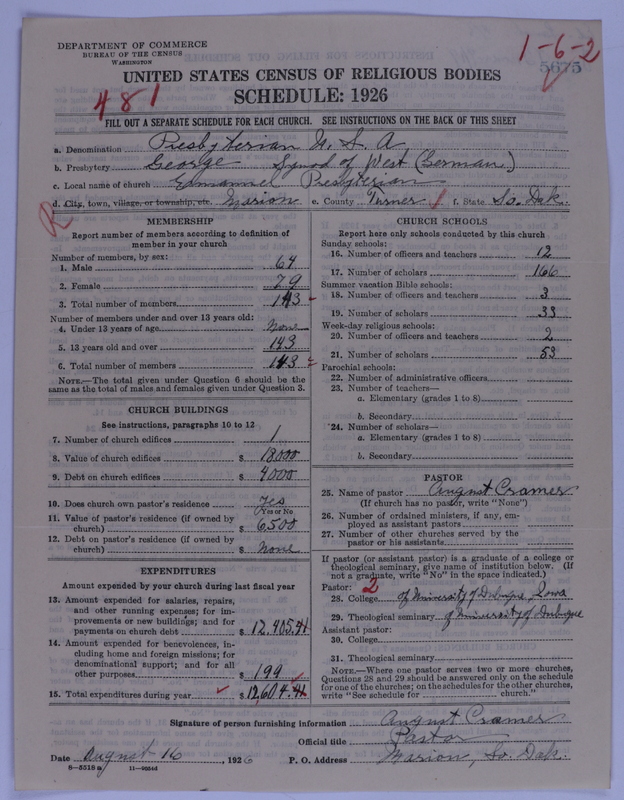 DEPARTMENT OF COMMERCE
BUREAU OF THE CENSUS
WASHINGTON
1-6-2
5675
UNITED STATES CENSUS OF RELIGIOUS BODIES
481
SCHEDULE: 1926
FILL OUT A SEPARATE SCHEDULE FOR EACH CHURCH. SEE INSTRUCTIONS ON THE BACK OF THIS SHEET
a. Denomination Presbyterian U. S. A
b. Presbytery George Synod of West (German)
c. Local name of church Emmanuel Presbyterian
d. City, town, village, or township, etc. Marion e. County Turner f. State So. Dak.
R
MEMBERSHIP
Report number of members according to definition of member in your church
Number of members, by sex:
1. Male 64
2. Female 79
3. Total number of members 143
Number of members under and over 13 years old:
4. Under 13 years of age None
5. 13 years old and over 143
6. Total number of members 143
NOTE.—The total given under Question 6 should be the
same as the total of males and females given under Question 3.
CHURCH BUILDINGS
See instructions, paragraphs 10 to 12
7. Number of church edifices 1
8. Value of church edifices $ 18000
9. Debt on church edifices $ 4000
10. Does church own pastor's residence Yes
Yes or No
11. Value of pastor's residence (if owned by
church) $ 6,500
12. Debt on pastor's residence (if owned by
church) $ None
EXPENDITURES
Amount expended by your church during last fiscal year
13. Amount expended for salaries, repairs,
and other running expenses; for im-
provements or new buildings; and for
payments on church debt $ 12,405.41
14. Amount expended for benevolences, in-
cluding home and foreign missions; for
denominational support; and for all
other purposes $ 199
15. Total expenditures during year $ 12,604.41
CHURCH SCHOOLS
Report here only schools conducted by this church
Sunday schools:
16. Number of officers and teachers 12
17. Number of scholars 166
Summer vacation Bible schools:
18. Number of officers and teachers 3
19. Number of scholars 33
Week-day religious schools:
20. Number of officers and teachers 2
21. Number of scholars 53
Parochial schools:
22. Number of administrative officers
23. Number of teachers—
a. Elementary (grades 1 to 8)
b. Secondary
24. Number of scholars—
a. Elementary (grades 1 to 8)
b. Secondary
PASTOR
25. Name of pastor August Cramer
(If church has no pastor, write "None")
26. Number of ordained ministers, if any, em-
ployed as assistant pastors
27. Number of other churches served by the
pastor or his assistants
If pastor (or assistant pastor) is a graduate of a college or
theological seminary, give name of institution below. (If
not a graduate, write "No" in the space indicated.)
Pastor: 2
28. College of University of Dubuque, Iowa
29. Theological seminary of University of Dubuque
Assistant pastor:
30. College
31. Theological seminary
NOTE.—Where one pastor serves two or more churches,
Questions 28 and 29 should be answered only on the schedule
for one of the churches; on the schedules for the other churches,
write "See schedule for church."
Signature of person furnishing information August Cramer
Official title Pastor
Date August 16, 1926 P. O. Address Marion, So. Dak.
8—5518 a 11—9554d